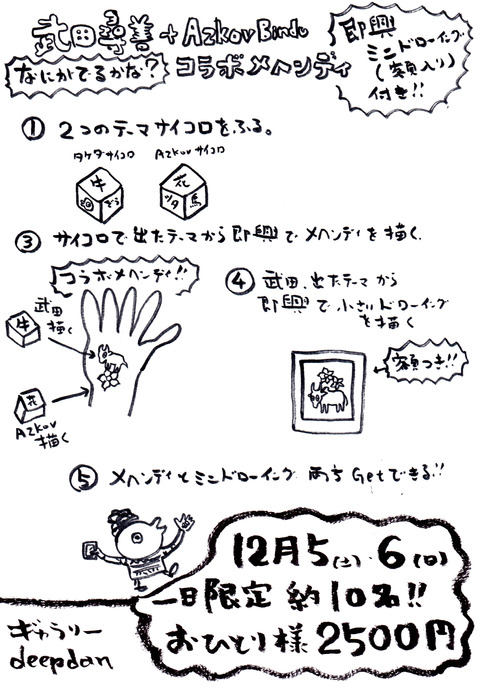 武田尋善+Azkov Bindu
なにがでるかな? コラボメヘンディ
即興
ミニドローイング
(額入り)
付き!!
① 2つのテーマサイコロをふる。
タケダサイコロ Azkovサイコロ
牛 ぞう
花 ツタ 馬
③ サイコロで出たテーマから即興でメヘンディを描く
コラボメヘンディ!!
武田
描く
牛
花
Azkov
描く
④ 武田、出たテーマから
即興で小さいドローイング
を描く
額つき!!
⑤ メヘンディとミニドローイング 両方Getできる!!
12月5(土)・6(日)
一日限定 約10名!!
おひとり様2500円
ギャラリー
deepdan